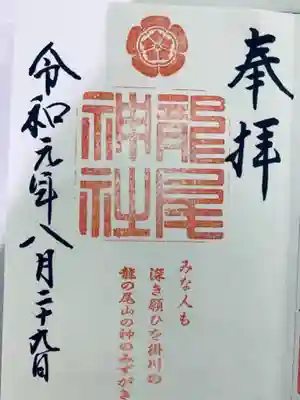 奉拝
龍尾神社
みな人も
深き願ひを掛川の
龍の尾山の神のみずがき
令和元年八月二十九日